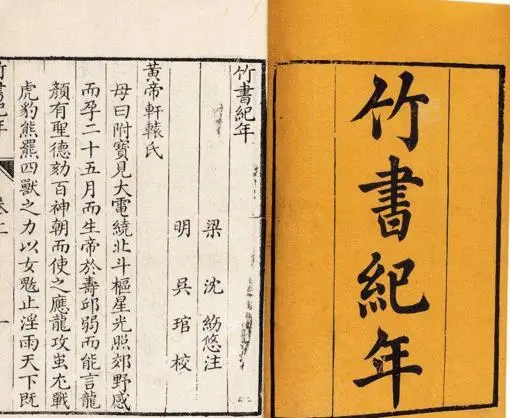 竹書紀年
竹書紀年
梁 沈約悠注
明 吳琯校
黄帝軒轅氏
母曰附寶見大電繞北斗樞星光照郊野感
而孕二十五月而生帝於壽邱弱而能言龍
顏有聖德劾百神朝而使之應龍攻蚩尤戰
虎豹熊羆四獸之力以女魃止淫雨天下既
竹書紀年 卷上 一